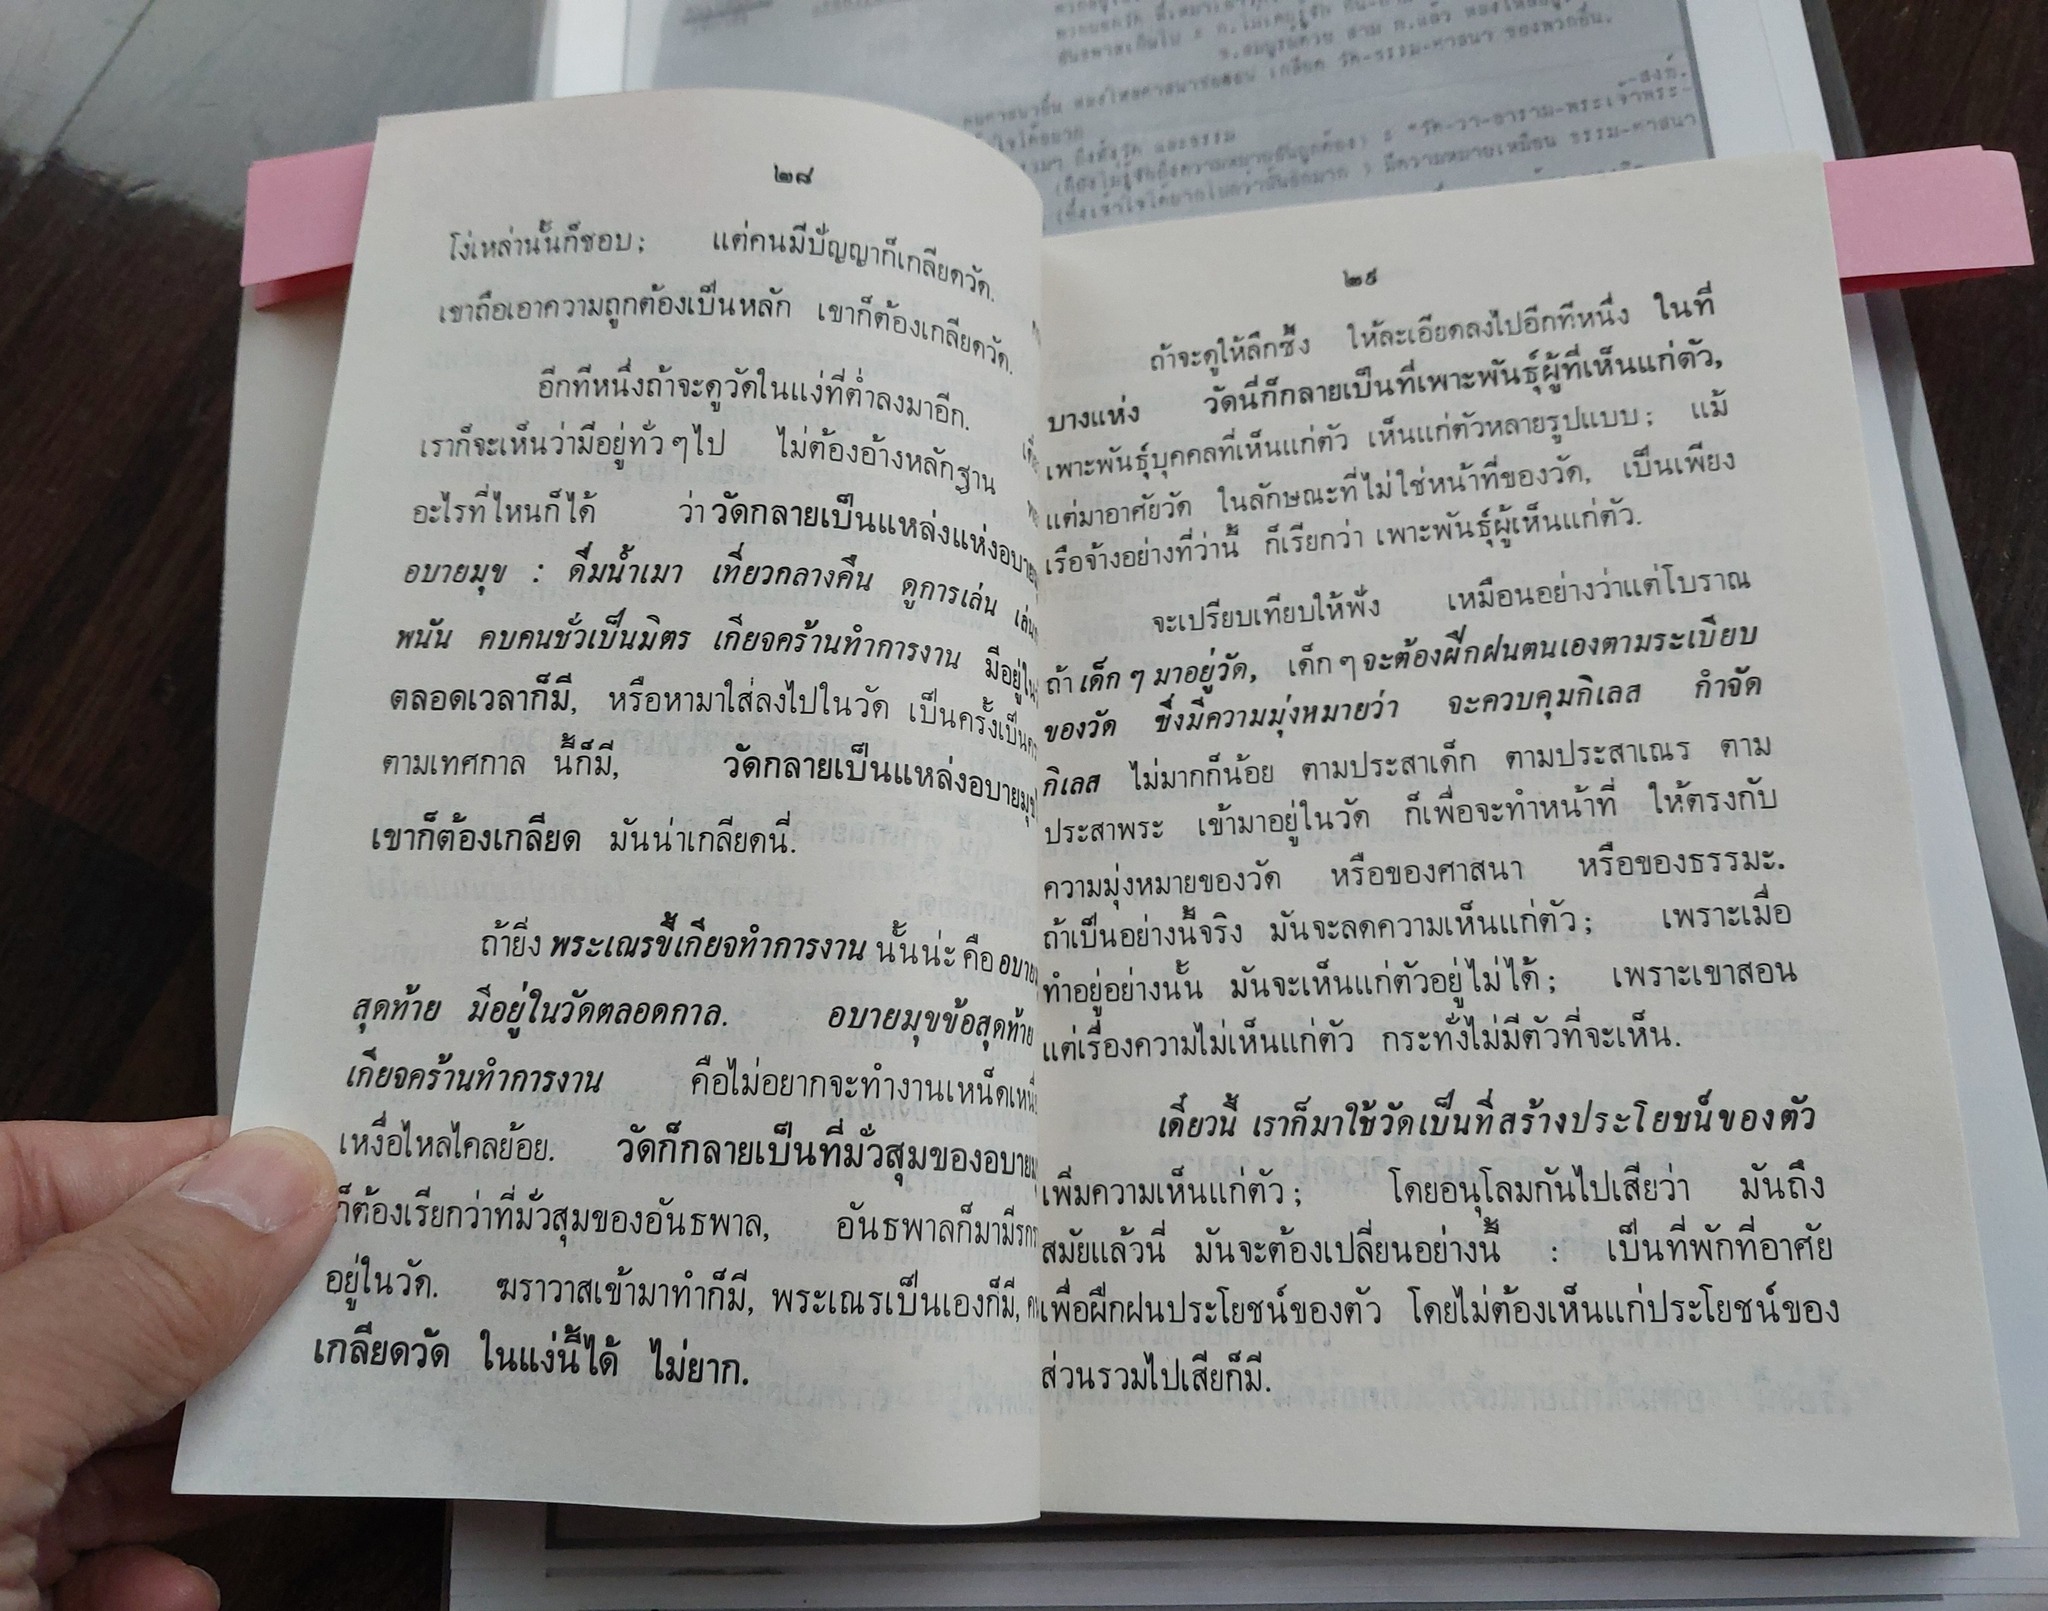 ๒๘
โง่เหล่านั้นก็ชอบ; แต่คนมีปัญญาก็เกลียดวัด.
เขาถือเอาความถูกต้องเป็นหลัก เขาก็ต้องเกลียดวัด.
อีกทีหนึ่งถ้าจะดูวัดในแง่ที่ต่ำลงมาอีก.
เราก็จะเห็นว่ามีอยู่ทั่วๆไป ไม่ต้องอ้างหลักฐาน
อะไรที่ไหนก็ได้ ว่าวัดกลายเป็นแหล่งแห่ง
อบายมุข : ดื่มน้ำเมา เที่ยวกลางคืน ดูการเล่น
พนัน คบคนชั่วเป็นมิตร เกียจคร้านทำการงาน
ตลอดเวลาก็มี, หรือหามาใส่ลงไปในวัด
ตามเทศกาล นี้ก็มี, วัดกลายเป็นแหล่งอบายมุข
เขาก็ต้องเกลียด มันน่าเกลียดนี่.
ถ้ายิ่ง พระเณรขี้เกียจทำการงาน นั้นน่ะ คือ
สุดท้าย มีอยู่ในวัดตลอดกาล. อบายมุขข้อสุดท้าย
เกียจคร้านทำการงาน คือไม่อยากจะทำงาน
เหงื่อไหลไคลย้อย. วัดก็กลายเป็นที่มั่วสุมของ
ก็ต้องเรียกว่าที่มั่วสุมของอันธพาล, อันธพาลก็มามี
อยู่ในวัด. ฆราวาสเข้ามาทำก็มี, พระเณรเป็นเองก็มี,
เกลียดวัด ในแง่นี้ได้ ไม่ยาก.
๒๙
ถ้าจะดูให้ลึกซึ้ง ให้ละเอียดลงไปอีกทีหนึ่ง ในที่
บางแห่ง วัดนี่ก็กลายเป็นที่เพาะพันธุ์ผู้ที่เห็นแก่ตัว,
เพาะพันธุ์บุคคลที่เห็นแก่ตัว เห็นแก่ตัวหลายรูปแบบ; แม้
แต่มาอาศัยวัด ในลักษณะที่ไม่ใช่หน้าที่ของวัด, เป็นเพียง
เรือจ้างอย่างที่ว่านี้ ก็เรียกว่า เพาะพันธุ์ผู้เห็นแก่ตัว.
จะเปรียบเทียบให้ฟัง เหมือนอย่างว่าแต่โบราณ
ถ้า เด็กๆ มาอยู่วัด, เด็กๆ จะต้องฝึกฝนตนเองตามระเบียบ
ของวัด ซึ่งมีความมุ่งหมายว่า จะควบคุมกิเลส กำจัด
กิเลส ไม่มากก็น้อย ตามประสาเด็ก ตามประสาเณร ตาม
ประสาพระ เข้ามาอยู่ในวัด ก็เพื่อจะทำหน้าที่ ให้ตรงกับ
ความมุ่งหมายของวัด หรือของศาสนา หรือของธรรมะ.
ถ้าเป็นอย่างนี้จริง มันจะลดความเห็นแก่ตัว; เพราะเมื่อ
ทำอยู่อย่างนั้น มันจะเห็นแก่ตัวอยู่ไม่ได้; เพราะเขาสอน
แต่เรื่องความไม่เห็นแก่ตัว กระทั่งไม่มีตัวที่จะเห็น.
เดี๋ยวนี้ เราก็มาใช้วัดเป็นที่สร้างประโยชน์ของตัว
เพิ่มความเห็นแก่ตัว; โดยอนุโลมกันไปเสียว่า มันถึง
สมัยแล้วนี่ มันจะต้องเปลี่ยนอย่างนี้ : เป็นที่พักที่อาศัย
เพื่อฝึกฝนประโยชน์ของตัว โดยไม่ต้องเห็นแก่ประโยชน์ของ
ส่วนรวมไปเสียก็มี.